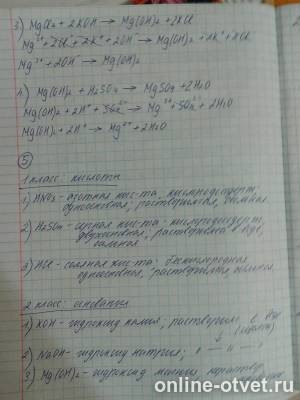 3) MgCl₂ + 2KOH → Mg(OH)₂ + 2KCl
Mg²⁺ + 2Cl⁻ + 2K⁺ + 2OH⁻ → Mg(OH)₂ + 2K⁺ + 2Cl⁻
Mg²⁺ + 2OH⁻ → Mg(OH)₂
4) Mg(OH)₂ + H₂SO₄ → MgSO₄ + 2H₂O
Mg(OH)₂ + 2H⁺ + SO₄²⁻ → Mg²⁺ + SO₄²⁻ + 2H₂O
Mg(OH)₂ + 2H⁺ → Mg²⁺ + 2H₂O
5
1 класс: кислоты
1) HNO₃ - азотная кис-та, кислородсодерж,
одноосновная, растворимая, сильная.
2) H₂SO₄ - серная кис-та: кислородсодерж,
двухосновная, растворимая в воде,
сильная
3) HCl - соляная кис-та: бескислородная
одноосновная, растворимая, сильная.
2 класс: основания
1) KOH - гидроксид калия, растворим в воде
(щелочь)
2) NaOH - гидроксид натрия, -- " --
3) Mg(OH)₂ - гидроксид магния,
online-otvet.ru